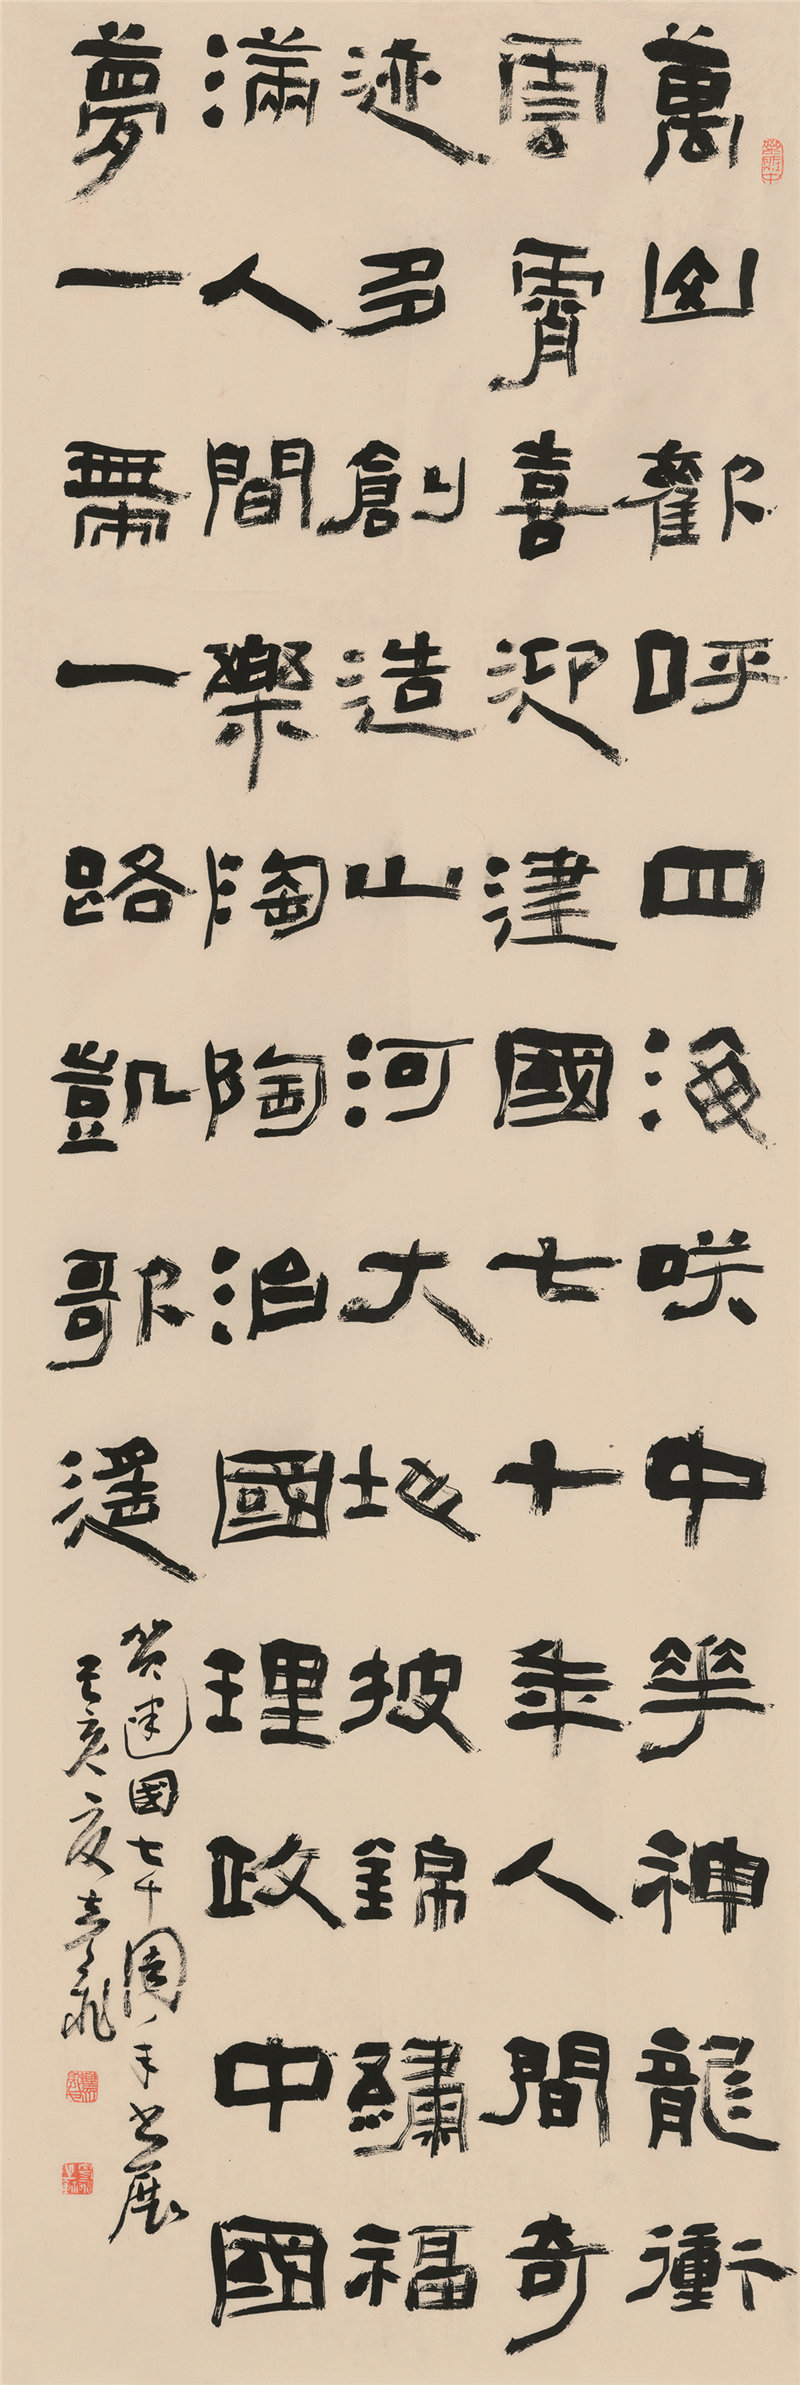 萬歡呼四海咲中華神龍衝
雲霄喜迎建國七十年人間奇
迹多創造山河大地披錦繡福
滿人間樂陶陶治國理政中國
夢一帶一路凱歌遥
賀建國七十周年书展
己亥夏